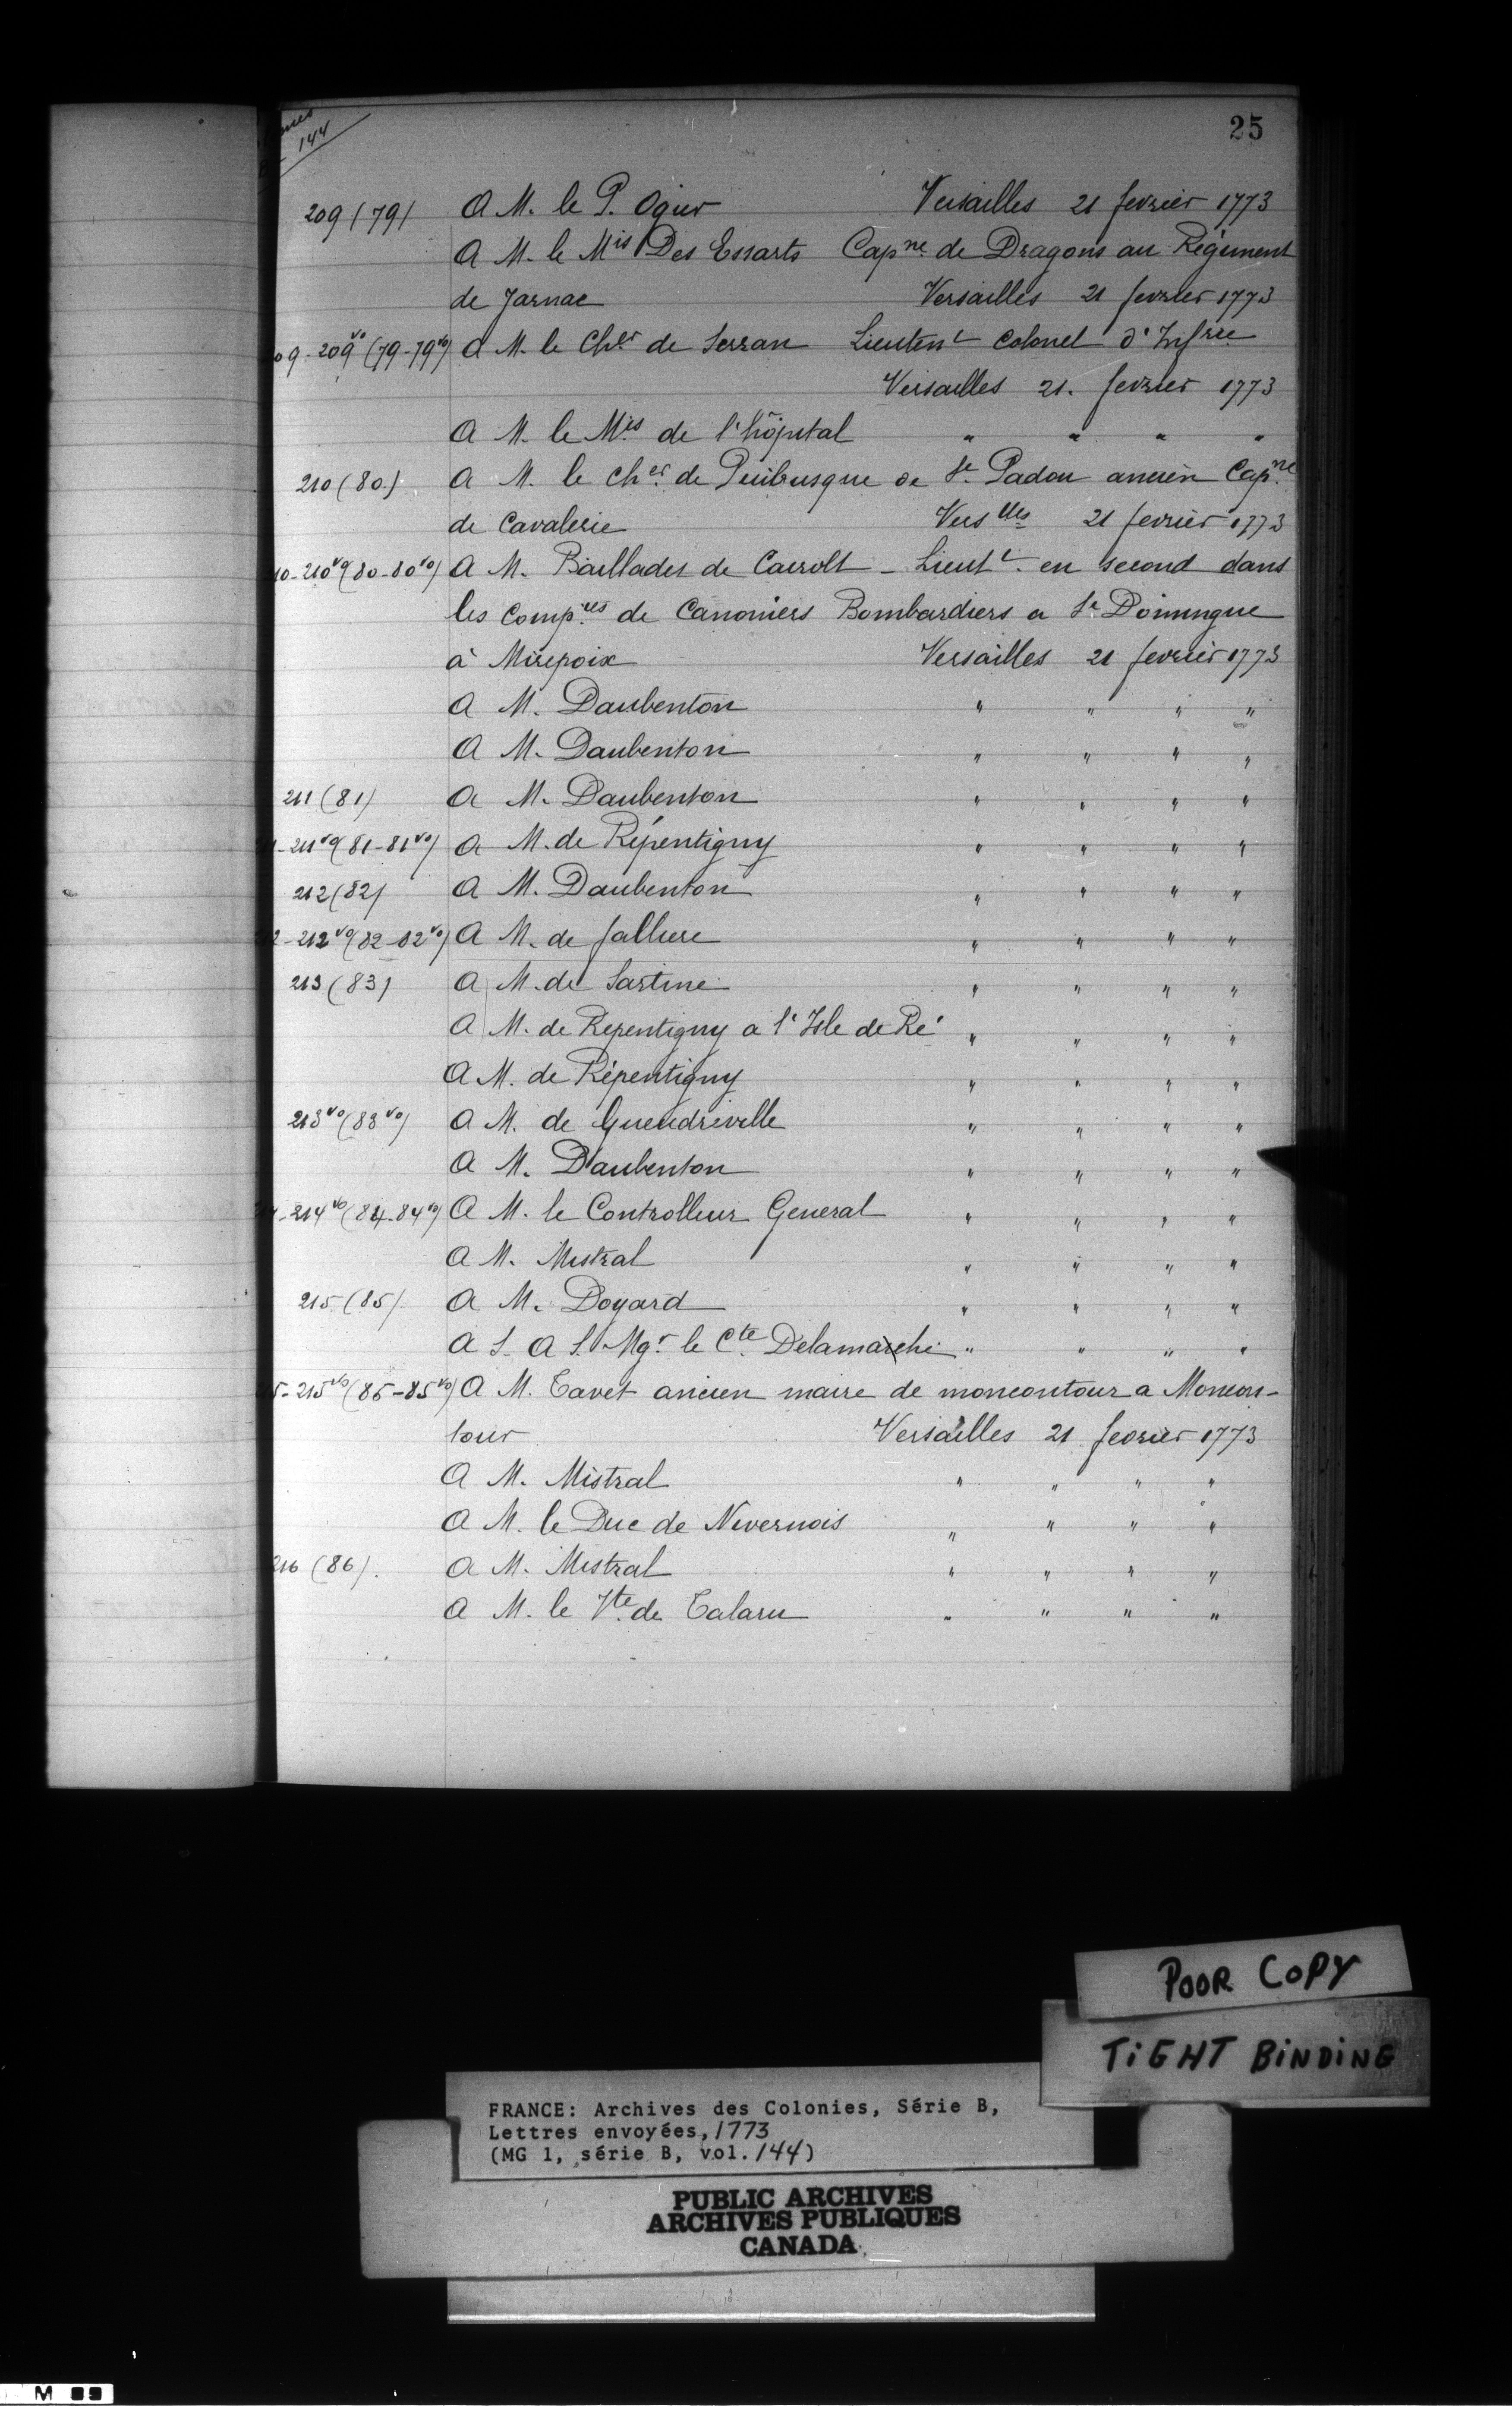 144
25
209 (79) A M. le P. Ogier Versailles 21 fevrier 1773
A M. le Mis Des Essarts Capne de Dragons au Régiment
de Jarnac Versailles 21 fevrier 1773
09-209vo (79-79vo) A M. le Cher de Serran Lieutent Colonel d'Infrie
Versailles 21. fevrier 1773
A M. le Mis de l'hôpital " " " "
210 (80) A M. le cher de Puibusque de St Padou ancien Capne
de Cavalerie Verslles 21 fevrier 1773
10-210vo (80-80vo) A M. Baillades de Cairolt - Lieutt en second dans
les Compies de Canoniers Bombardiers a St Domingue
à Mirepoix Versailles 21 fevrier 1773
A M. Daubenton " " " "
A M. Daubenton " " " "
211 (81) A M. Daubenton " " " "
-211vo (81-81vo) A M. de Répentigny " " " "
212 (82) A M. Daubenton " " " "
2-212vo (82-82vo) A M. de Falliere " " " "
213 (83) A M. de Sartine " " " "
A M. de Repentigny a l'Isle de Ré " " " "
A M. de Répentigny " " " "
213vo (83vo) A M. de Gueudreville " " " "
A M. Daubenton " " " "
-214vo (84-84vo) A M. le Controlleur General " " " "
A M. Mistral " " " "
215 (85) A M. Doyard " " " "
A S. A S. Mgr le Cte Delamarche " " " "
5-215vo (85-85vo) A M. Tavet ancien maire de moncontour a Moncon-
tour Versailles 21 fevrier 1773
A M. Mistral " " " "
A M. le Duc de Nivernois " " " "
216 (86). A M. Mistral " " " "
A M. le Vte de Talaru " " " "
POOR COPY
TIGHT BINDING
FRANCE: Archives des Colonies, Série B,
Lettres envoyées, 1773
(MG 1, série B, vol. 144)
PUBLIC ARCHIVES
ARCHIVES PUBLIQUES
CANADA